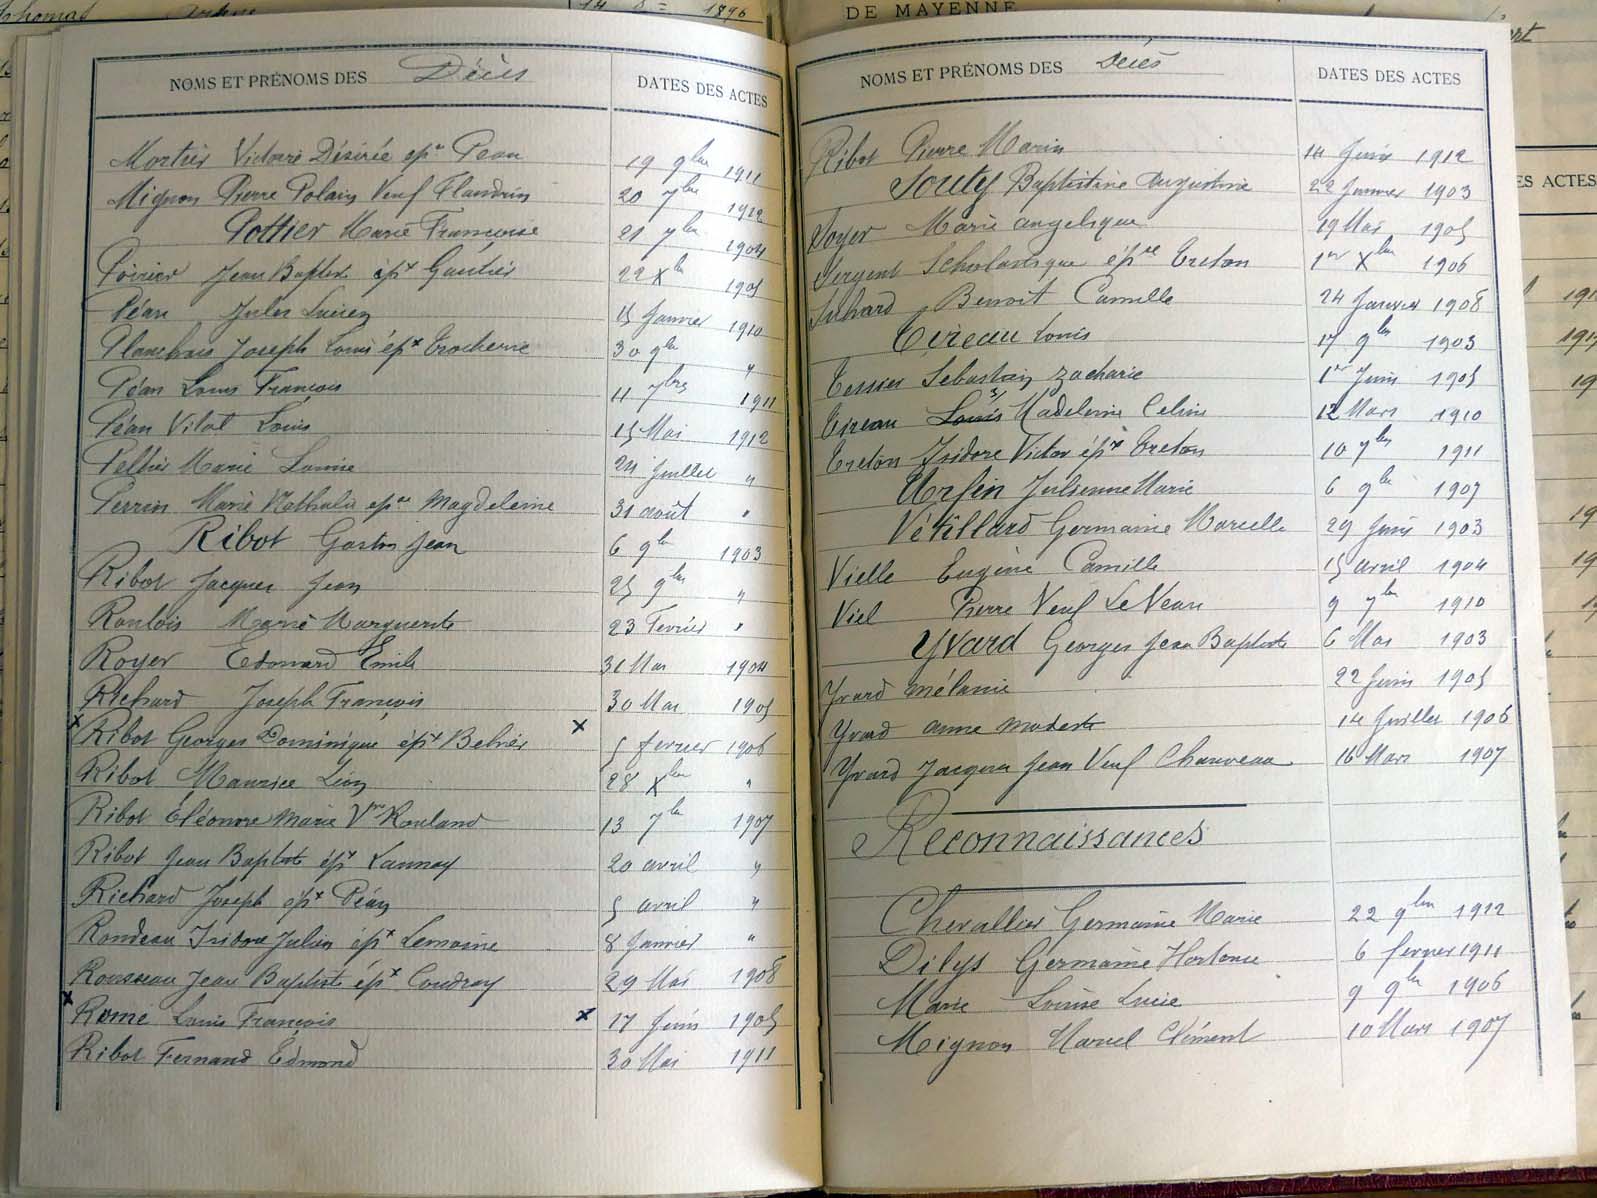 Thomas
14 8re 1896
DE MAYENNE
NOMS ET PRÉNOMS DES Décès DATES DES ACTES
Mortier Victoire Désirée épse Péan 19 9bre 1911
Mignon Pierre Polain Veuf Flandrin 20 7bre 1912
Pottier Marie Françoise 21 7bre 1904
Poirier Jean Baptiste épx Gautier 22 Xbre 1905
Péan Jules Lucien 15 Janvier 1910
Planchais Joseph Louis épx Trocherie 30 9bre "
Péan Louis François 11 7bre 1911
Péan Vital Louis 15 Mai 1912
Pellier Marie Louise 24 Juillet "
Perrin Marie Nathalie épse Magdeleine 31 août "
Ribot Gaston Jean 6 9bre 1903
Ribot Jacques Jean 25 9bre "
Roulois Marie Marguerite 23 Fevrier "
Royer Edouard Emile 31 Mai 1904
Richard Joseph François 30 Mai 1905
x Ribot Georges Dominique épx Belnier x 5 fevrier 1906
Ribot Maurice Léon 28 Xbre "
Ribot Éléonore Marie Vve Rouland 13 7bre 1907
Ribot Jean Baptiste épx Launay 20 avril "
Richard Joseph épx Péan 5 avril "
Rondeau Isidore Julien épx Lemoine 8 Janvier "
Rousseau Jean Baptiste épx Coudray 29 Mai 1908
x Romé Louis François x 17 Juin 1905
Ribot Fernand Edmond 30 Mai 1911
NOMS ET PRÉNOMS DES Décès DATES DES ACTES
Ribot Pierre Marin 14 Juin 1912
Souty Baptistine Augustine 22 Janvier 1903
Soyer Marie angelique 19 Mai 1905
Sergent Scholastique épse Creton 1er Xbre 1906
Suhard Benoit Camille 24 Janvier 1908
Tireau Louis 17 9bre 1903
Tessier Sebastien Zacharie 1er Juin 1905
Tireau Louis Madeleine Celine 12 Mars 1910
Creton Isidore Victor épx Creton 10 7bre 1911
Urfin Julienne Marie 6 9bre 1907
Vétillard Germaine Marcelle 29 Juin 1903
Vielle Eugène Camille 15 avril 1904
Viel Pierre Veuf Le Veau 9 7bre 1910
Yvard Georges Jean Baptiste 6 Mai 1903
Yvard Mélanie 22 Juin 1905
Yvard anne modeste 14 Juillet 1906
Yvard Jacques Jean Veuf Chauveau 16 Mars 1907
Reconnaissances
Chevallier Germaine Marie 22 9bre 1912
Dilys Germaine Hortense 6 fevrier 1911
Marie Louise Lucie 9 9bre 1906
Mignon Marcel Clément 10 Mars 1907
ES ACTES